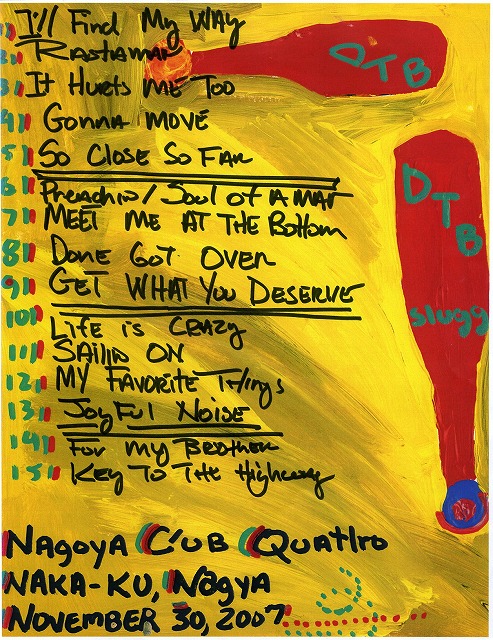 1) I'll Find My WAY
2) RASTAMAN
3) It Hurts ME Too
4) GONNA MOVE
5) SO CLOSE SO FAR
6) Preachin / Soul of A MAN
7) MEET ME AT THE Bottom
8) DONE GOT OVER
9) GET WHAT YOU DESERVE
10) LiFE iS CRAZY
11) SAilin ON
12) MY FAVORITE THiNgs
13) JOYFUl NOISE
14) FOR MY BROTHER
15) KEY TO THE HigHwAy
DTB
DTB
slugg
NAGOYA ClUB QUATTRO
NAKA-KU, NAGYA
NOVEMBER 30, 2007